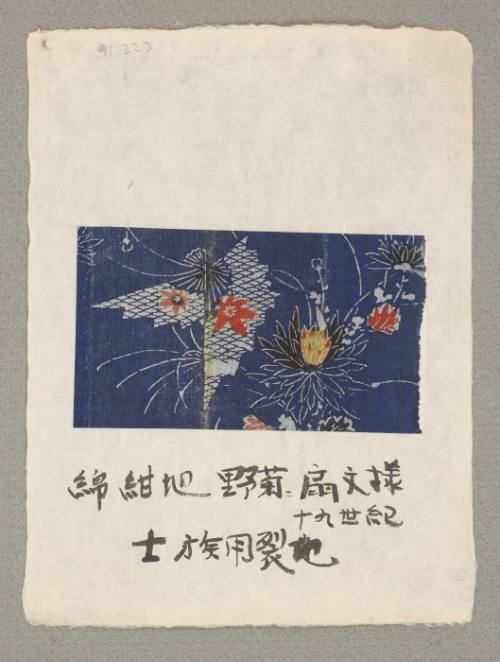 91.223
綿 紺地 野菊 扇文様
十九世紀
士族用裂地